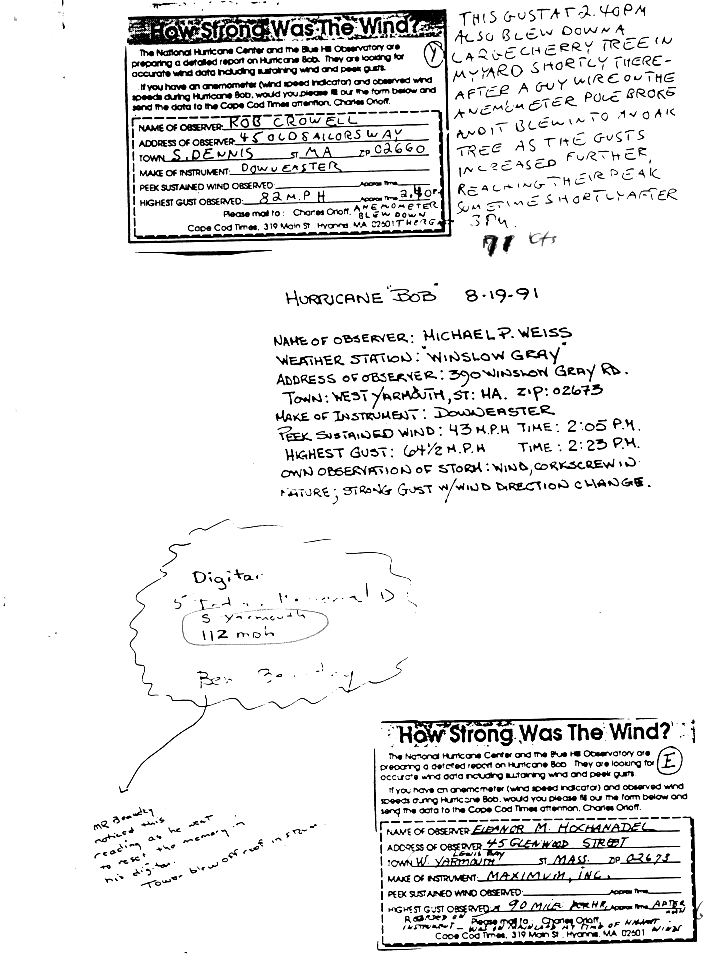 How Strong Was The Wind?
The National Hurricane Center and the Blue Hill Observatory are
preparing a detailed report on Hurricane Bob. They are looking for
accurate wind data including sustaining wind and peek gusts.
If you have an anemometer (wind speed indicator) and observed wind
speeds during Hurricane Bob, would you please fill our the form below and
send the data to the Cape Cod Times attention, Charles Orloff.
Y
NAME OF OBSERVER: ROB CROWELL
ADDRESS OF OBSERVER: 45 OLD SAILORS WAY
TOWN S. DENNIS ST MA ZIP 02660
MAKE OF INSTRUMENT: DOWNEASTER
PEEK SUSTAINED WIND OBSERVED: Approx Time
HIGHEST GUST OBSERVED: 82 M.P.H Approx Time 2.40 P.
Please mail to: Charles Orloff,
ANEMOMETER
BLEW DOWN
Cape Cod Times, 319 Main St. Hyannis, MA 02601
THIS GUST AT 2.40PM
ALSO BLEW DOWN A
LARGE CHERRY TREE IN
MY YARD SHORTLY THERE-
AFTER A GUY WIRE ON THE
ANEMEMETER POLE BROKE
AND IT BLEW INTO AN OAK
TREE AS THE GUSTS
INCREASED FURTHER,
REACHING THEIR PEAK
SOMETIME SHORTLY AFTER
3PM.
71 Kts
HURRICANE "BOB" 8-19-91
NAME OF OBSERVER: MICHAEL P. WEISS
WEATHER STATION: "WINSLOW GRAY"
ADDRESS OF OBSERVER: 390 WINSLOW GRAY RD.
TOWN: WEST YARMOUTH, ST: MA. ZIP: 02673
MAKE OF INSTRUMENT: DOWNEASTER
PEEK SUSTAINED WIND: 43 M.P.H TIME: 2:05 P.M.
HIGHEST GUST: 64½ M.P.H TIME: 2:23 P.M.
OWN OBSERVATION OF STORM: WIND, CORKSCREW IN
NATURE; STRONG GUST W/WIND DIRECTION CHANGE.
Digitar
S Yarmouth
112 mph
Ben
MR
noticed this
reading as he went
to reset the memory in
his digitar.
Tower blew off roof in
How Strong Was The Wind?
The National Hurricane Center and the Blue Hill Observatory are
preparing a detailed report on Hurricane Bob. They are looking for
accurate wind data including sustaining wind and peek gusts.
If you have an anemometer (wind speed indicator) and observed wind
speeds during Hurricane Bob, would you please fill our the form below and
send the data to the Cape Cod Times attention, Charles Orloff.
E
NAME OF OBSERVER: ELEANOR M. HOCHANADEL
ADDRESS OF OBSERVER: 45 GLENWOOD STREET
LEWIS BAY
TOWN W. YARMOUTH ST MASS. ZIP 02673
MAKE OF INSTRUMENT: MAXIMUM, INC.
PEEK SUSTAINED WIND OBSERVED: Approx Time
HIGHEST GUST OBSERVED: 90 MILE PER HR. Approx Time AFTER
RECORDED ON
Please mail to: Charles Orloff,
INSTRUMENT - WAS ON MAINLAND AT TIME OF HIGHEST WINDS
Cape Cod Times, 319 Main St. Hyannis, MA 02601